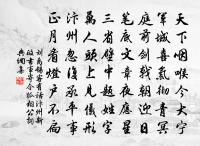 天下咽喉今大寧
軍城喜氣徹青冥
庭前劍戟朝迎日
筆底文章夜應星
三省壁中題姓字
萬人頭上見儀形
汴州忽復承平事
正月看燈戶不扃
劉禹錫客有話汴州新
政書事寄令狐相公詩